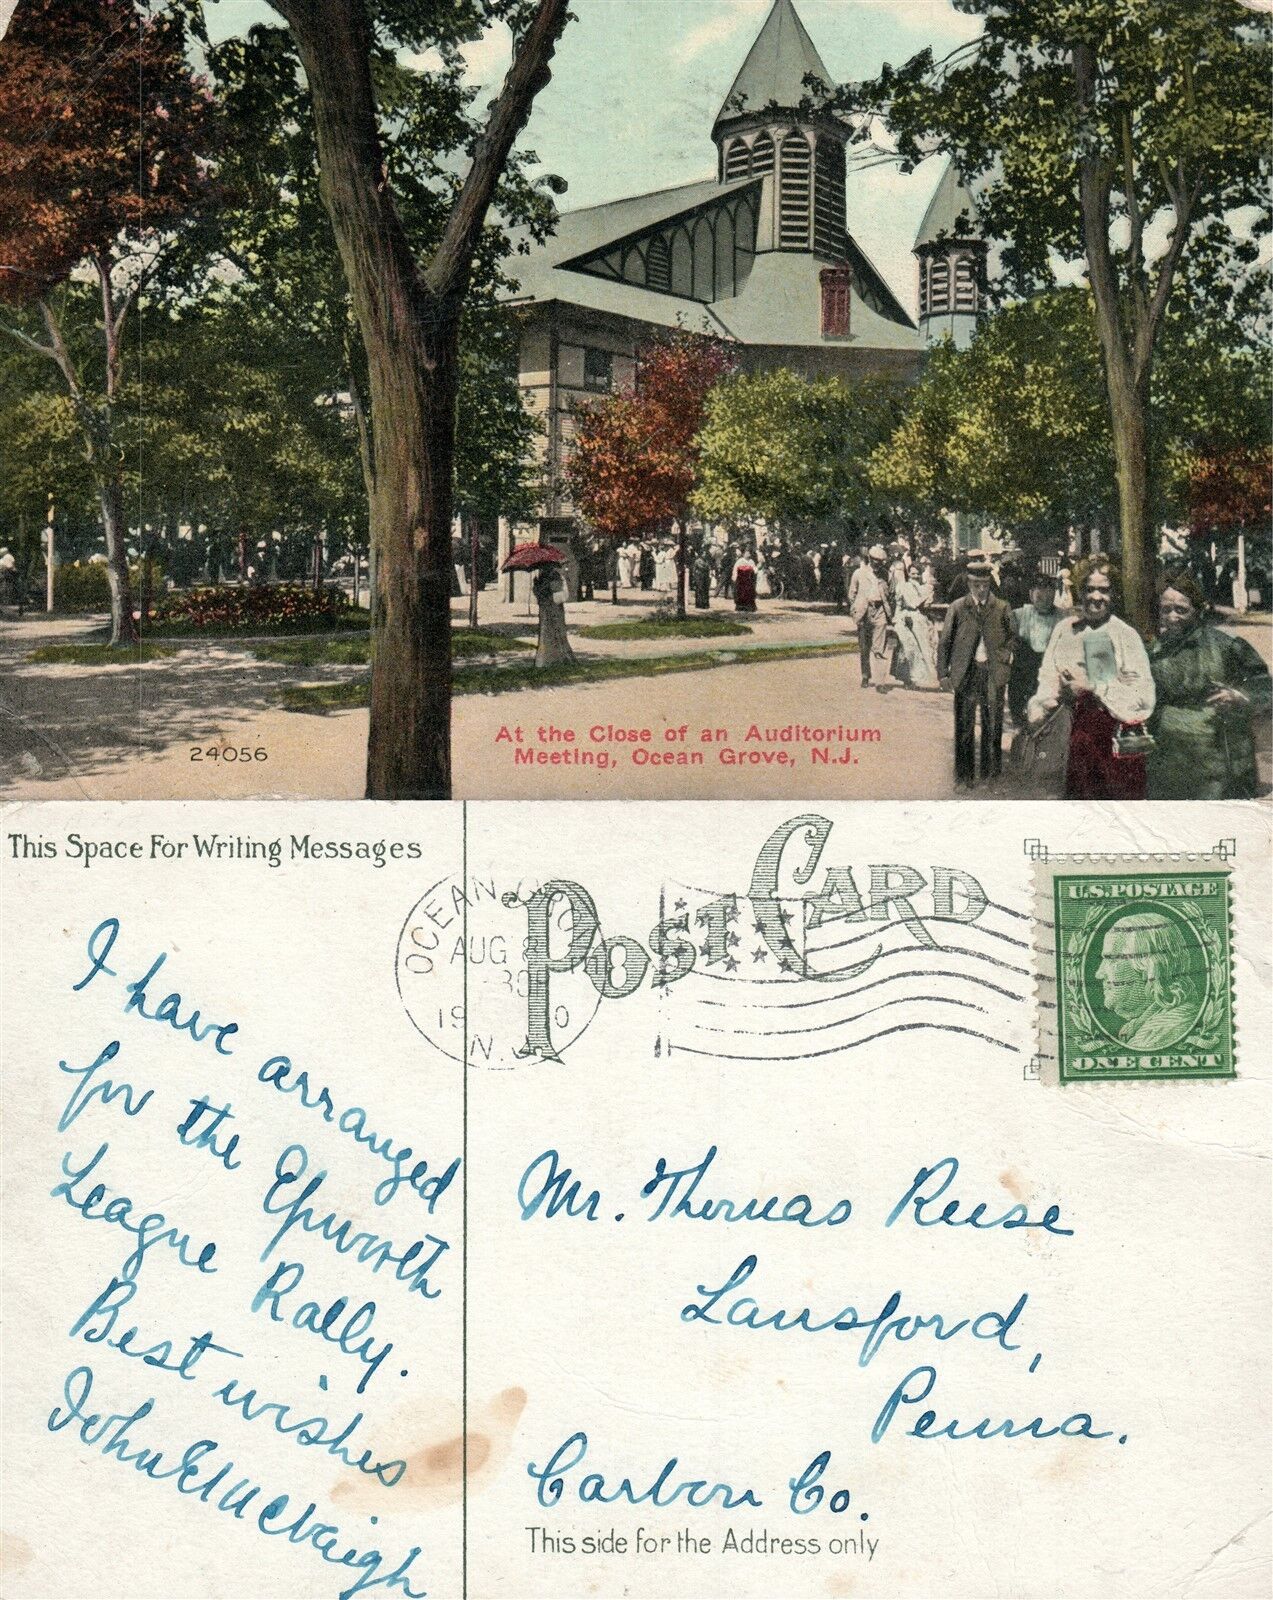 24056
At the Close of an Auditorium
Meeting, Ocean Grove, N.J.
This Space For Writing Messages
POST CARD
OCEAN GRO
AUG 8
30
19 0
N.J.
U.S. POSTAGE
ONE CENT
I have arranged
for the Epworth
League Rally.
Best wishes
John E
Mr. Thomas Reese
Lansford,
Penna.
Carbon Co.
This side for the Address only